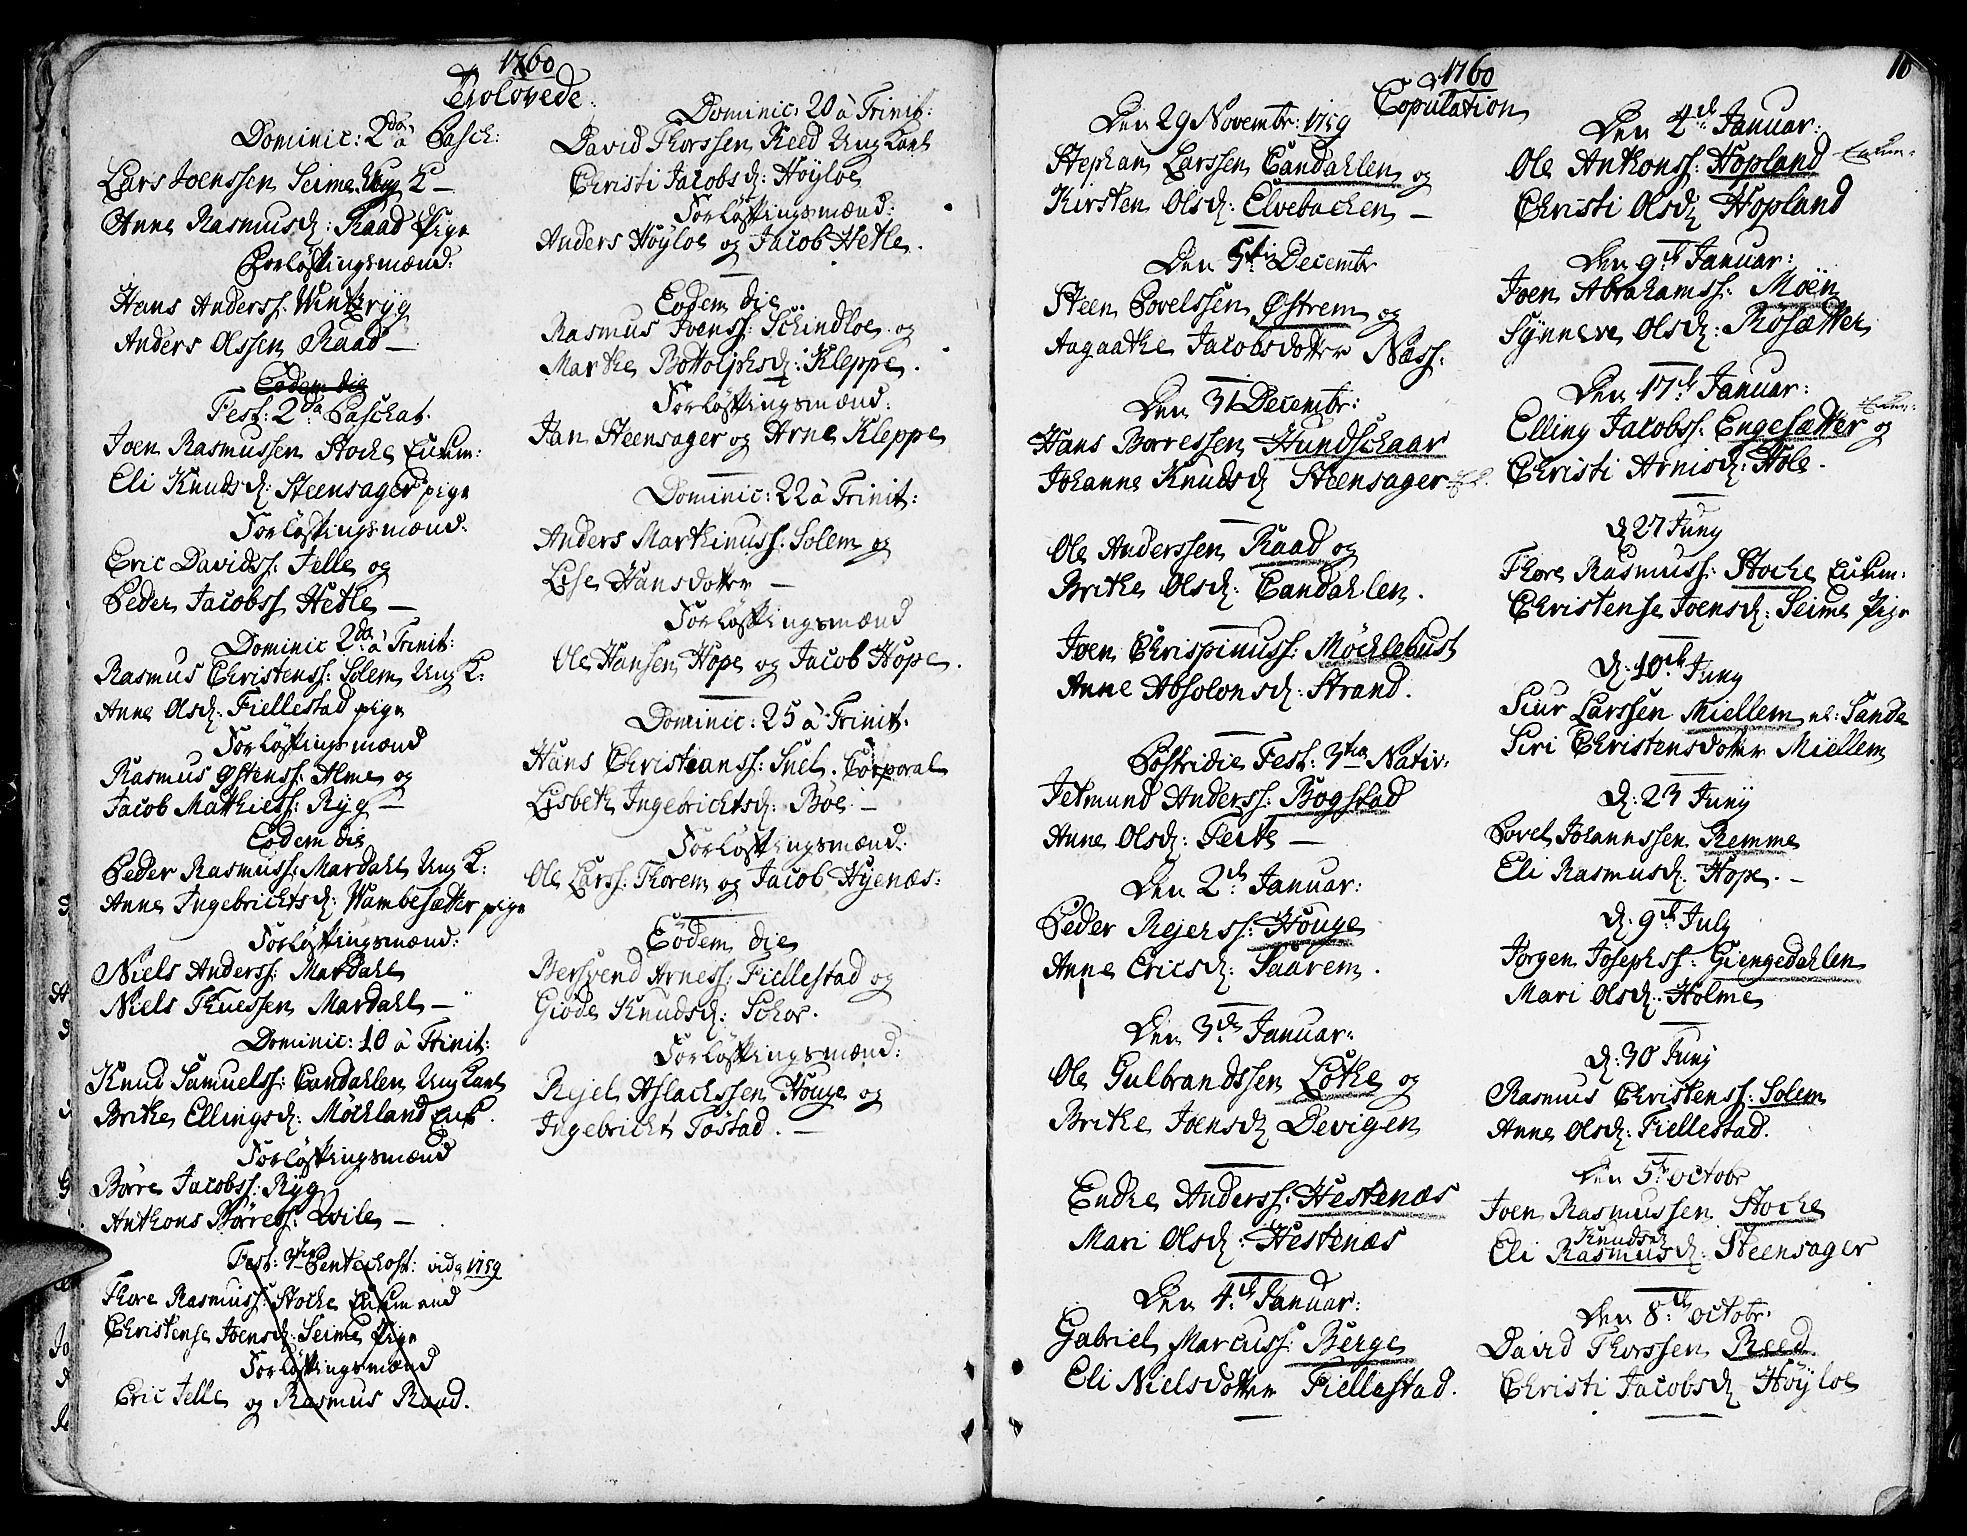 1760
Trolovede.
Dominic: 2da à Pasch:
Lars Joenssen Seime Ung K –
Anne Rasmusd: Raad Pige
Forløftingsmænd:
Hans Anderss: Winteryg
Anders Olssen Raad –
Eodem die
Fest: 2da Paschat.
Joen Rasmussen Stoche Enkem:
Eli Knudsd: Steensager pige
Forløftingsmænd:
Eric Davidss: Felle og
Peder Jacobss Hetle –
Dominic 2da à Trinit:
Rasmus Christenss: Solem Ung K:
Anne Olsd: Fiellestad pige
Forløftingsmænd
Rasmus Østenss: Alme og
Jacob Mathiess: Ryg –
Eodem die
Peder Rasmuss: Mardahl Ung K:
Anne Ingebrichtsd: Wambesætter pige
Forløftingsmænd:
Niels Anderss: Mardahl
Niels Thuessen Mardahl –
Dominic: 10 à Trinit:
Knud Samuelss: Candahlen Ung Karl
Brithe Ellingsd: Möchland Enk.
Forløftingsmænd
Børre Jacobss: Ryg
Anthons Børress: Wile –
Fest: 3tia Pentechost: vid 1759
Thore Rasmuss: Stoche Enkem and
Christense Joensd: Seime Pige
Forløftingsmænd
Eric Felle og Rasmus Raad.
Dominic: 20 à Trinit:
David Thorssen Reed Ung Karl
Christi Jacobsd: Höyloe
Forløftingsmænd:
Anders Höyloe og Jacob Hetle.
Eodem die
Rasmus Joenss: Schindloe og
Marthe Bottolphsd: Kleppe.
Forløftingsmænd:
Jan Steensager og Arne Kleppe
Dominic: 22 à Trinit:
Anders Marthinuss: Solem og
Lise Hansdotter –
Forløftingsmænd
Ole Hansen Hope og Jacob Hope.
Dominic: 25 à Trinit:
Hans Christianss: Snel. Corporal
Lisbeth Ingebrichtsd: Böe –
Forløftingsmænd:
Ole Larss: Thorem og Jacob Hyenæs:
Eodem die
Bersvend Arness: Fiellestad og
Giöde Knudsd: Sohor.
Forløftingsmænd:
Rejel Aslachssen Houge og
Ingebricht Töstad. –
1760
Copulation
10
Den 29 Novembr: 1759
Stephan Larssen Candahlen og
Kirsten Olsd: Elvebachen –
Den 5te Decembr
Steen Povelssen Østrem og
Aagathe Jacobsdotter Næss:
Den 31 Decembr:
Hans Børressen Hundschaar
Johanne Knudsd Steensager
Ole Anderssen Raad og
Brithe Olsd: Candahlen.
Joen Chrispinuss: Möchlebust
Anne Absolonsd: Strand.
Postridie Fest: 3tia Nativ:
Jetmund Anderss: Bogstad
Anne Olsd: Feite –
Den 2d Januar:
Peder Rejerss: Houge
Anne Ericsd: Saurem.
Den 3d Januar:
Ole Gulbrandssen Löthe og
Brithe Joensd Devigen
Endre Anderss: Hestenæs
Mari Olsd: Hestenæs
Den 4d Januar:
Gabriel Marcuss: Berge
Eli Nielsdotter Fiellestad.
Den 4d Januar:
Ole Anthonss: Hopland Enkem:
Christi Olsd Hopland
Den 9d Januar:
Joen Abrahamss: Moën
Synneve Olsd: Rösætter
Den 17d Januar:
Elling Jacobss: Engesætter og Enkem:
Christi Arnisd: Hole.
d 27 Juny
Thore Rasmuss: Stoche Enkem:
Christense Joensd: Seime Pige
d: 10d Juny
Siur Larssen Miellem el: Sande
Siri Christensdotter Miellem
d: 23 Juny
Povel Johannssen Remme
Eli Rasmusd: Hope. –
d: 9d July
Jørgen Josephss: Giengedahlen
Mari Olsd: Holme
d: 30 Juny
Rasmus Christenss: Solem
Anne Olsd: Fiellestad.
Den 5te octobr
Joen Rasmussen Stoche
Knudsd
Eli Rasmusd: Steensager
Den 8d octobr:
David Thorssen Reed.
Christi Jacobsd Höyloe